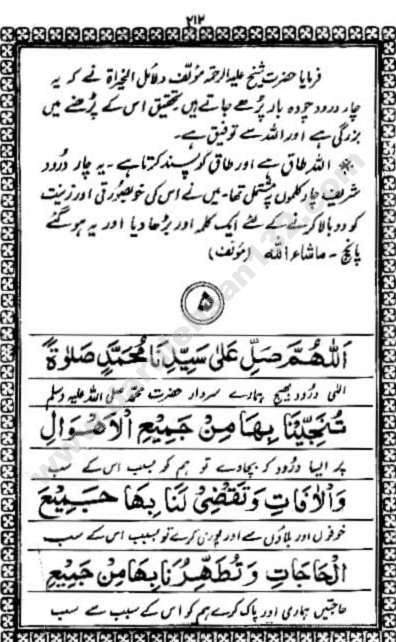 ۲۱۲
فرمایا حضرت شیخ علیہ الرحمۃ مؤلف دلائل الخیرات نے کہ یہ
چار درود چودہ بار پڑھے جاتے ہیں بتحقیق اس کے پڑھنے میں
بزرگی ہے اور اللہ سے توفیق ہے۔
※ اللہ طاق ہے اور طاق کو پسند کرتا ہے۔ یہ چار درود
شریف چار کلموں پر مشتمل تھا۔ میں نے اس کی خوبصورتی اور زینت
کو دوبالا کرنے کے لئے ایک کلمہ اور بڑھا دیا اور یہ ہو گئے
پانچ۔ ماشاء اللہ (مؤلف)
۵
اَللّٰهُمَّ صَلِّ عَلٰى سَيِّدِنَا مُحَمَّدٍ صَلٰوةً
الٰہی درود بھیج ہمارے سردار حضرت محمد صلی اللہ علیہ وسلم
تُنَجِّيْنَا بِهَا مِنْ جَمِيْعِ الْاَهْوَالِ
پر ایسا درود کہ بچاوے تو ہم کو بسبب اس کے سب
وَالْاٰفَاتِ وَتَقْضِيْ لَنَا بِهَا جَمِيْعَ
خوفوں اور بلاؤں سے اور پوری کرے تو بسبب اس کے سب
الْحَاجَاتِ وَتُطَهِّرُنَا بِهَا مِنْ جَمِيْعِ
حاجتیں ہماری اور پاک کرے ہم کو اس کے سبب سے سب